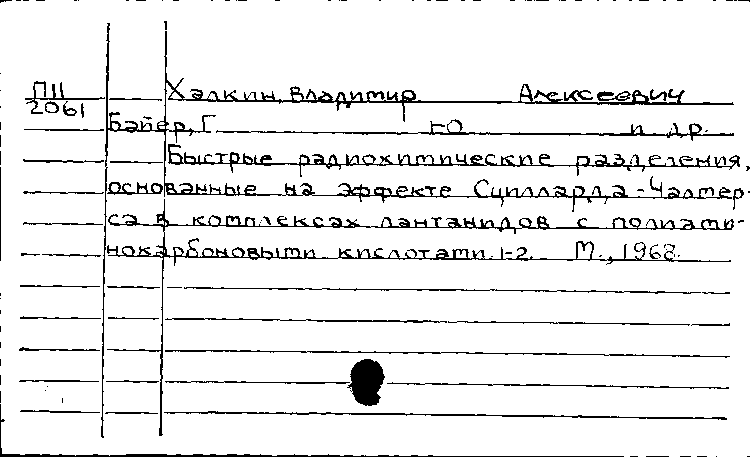 П11 Халкин, Владимир Алексеевич
2061
Байер, Г. Ю. и др.
Быстрые радиохимические разделения,
основанные на эффекте Сцилларда-Чалмер-
са в комплексах лантанидов с полиами-
нокарбоновыми кислотами. 1-2. М., 1968.